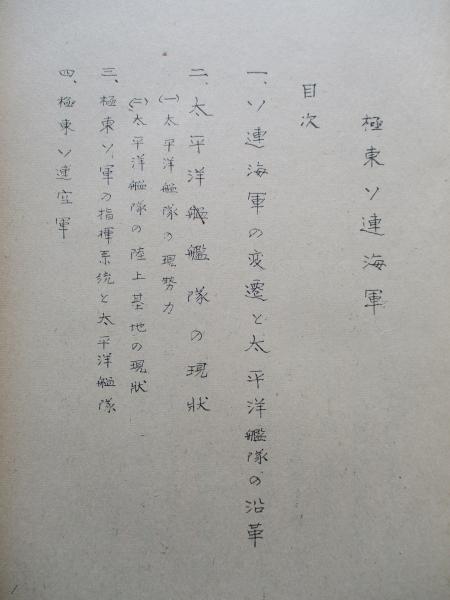 極東ソ連海軍
目次
一、ソ連海軍の変遷と太平洋艦隊の沿革
二、太平洋艦隊の現狀
(一)太平洋艦隊の現勢力
(二)太平洋艦隊の陸上基地の現狀
三、極東ソ軍の指揮系統と太平洋艦隊
四、極東ソ連空軍